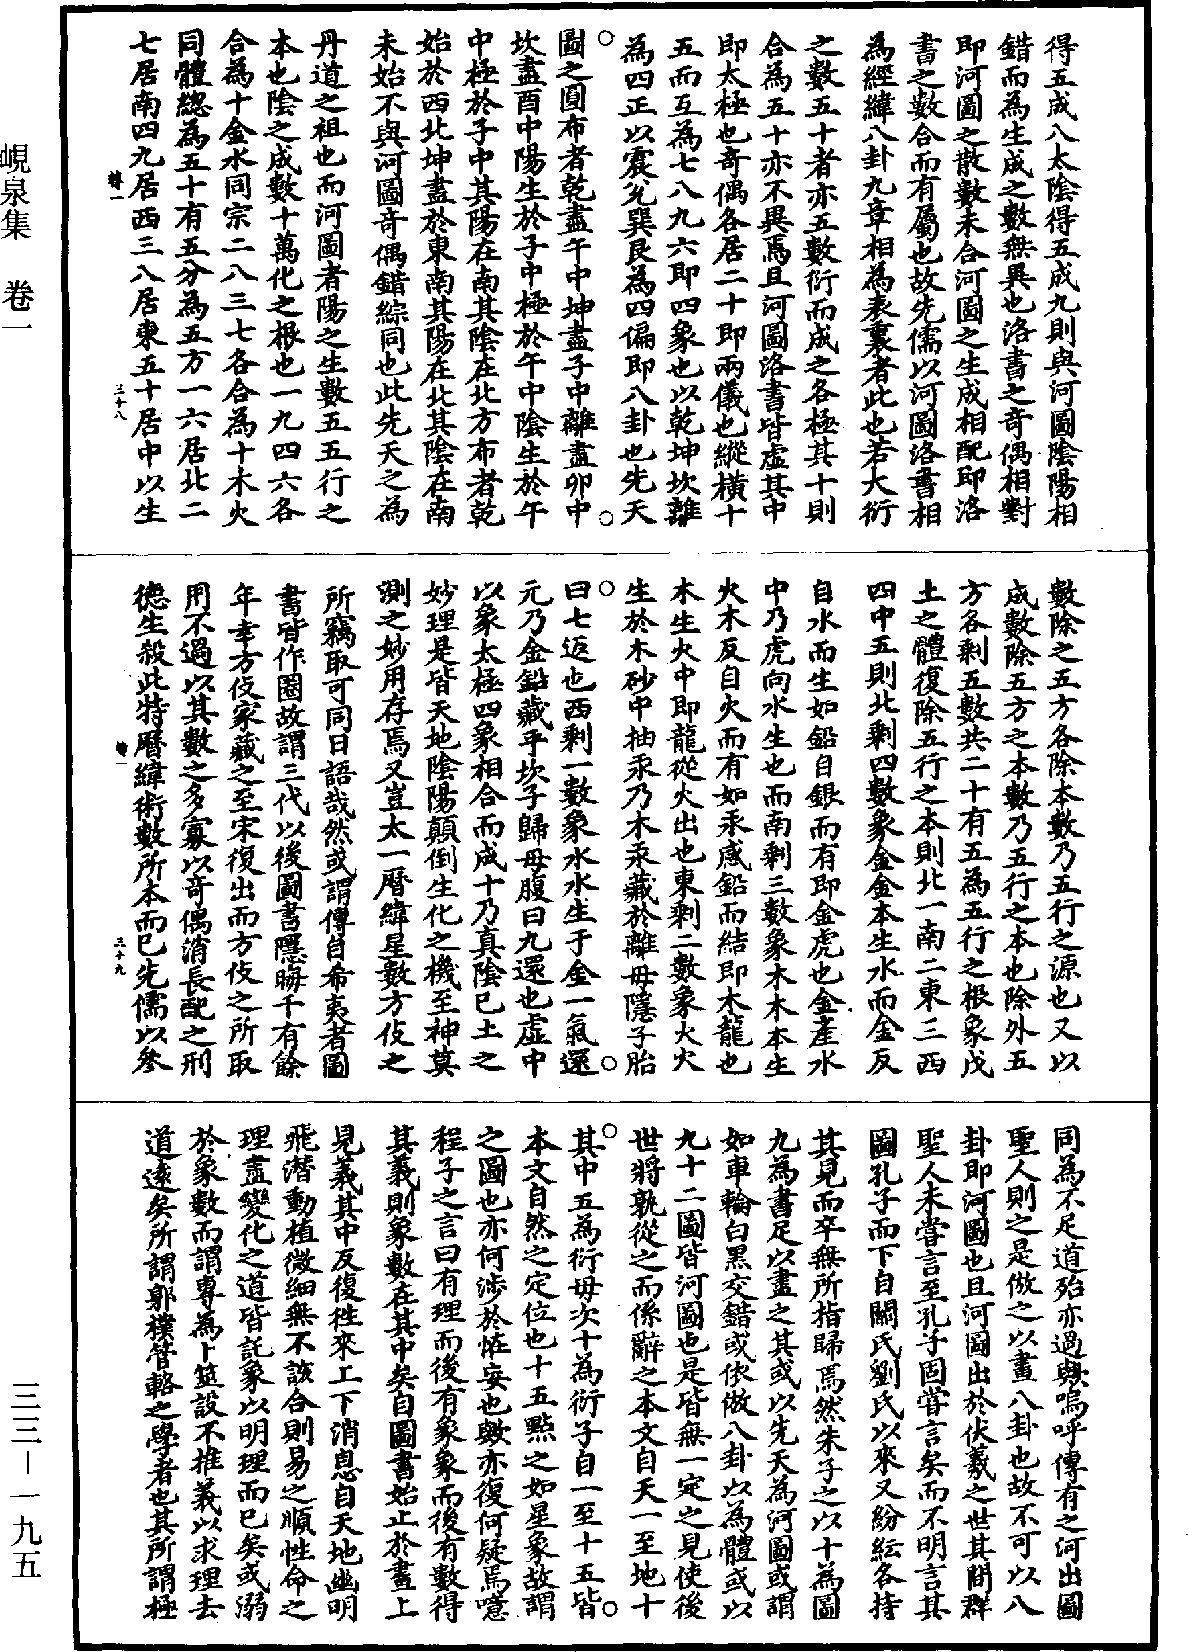 得五成八太陰得五成九則與河圖陰陽相
錯而為生成之數無異也洛書之奇偶相對
即河圖之散數未合河圖之生成相配即洛
書之數合而有屬也故先儒以河圖洛書相
為經緯八卦九章相為表裏者此也若大衍
之數五十者亦五數衍而成之各極其十則
合為五十亦不異焉且河圖洛書皆虛其中
即太極也奇偶各居二十即兩儀也縱橫十
五而互為七八九六即四象也以乾坤坎離
為四正以震兌巽艮為四偏即八卦也先天
圖之圓布者乾盡午中坤盡子中離盡卯中
坎盡酉中陽生於子中極於午中陰生於午
中極於子中其陽在南其陰在北方布者乾
始於西北坤盡於東南其陽在北其陰在南
未始不與河圖奇偶錯綜同也此先天之為
丹道之祖也而河圖者陽之生數五五行之
本也陰之成數十萬化之根也一九四六各
合為十金水同宗二八三七各合為十木火
同體總為五十有五分為五方一六居北二
七居南四九居西三八居東五十居中以生
三十八
數除之五方各除本數乃五行之源也又以
成數除五方之本數乃五行之本也除外五
方各剩五數共二十有五為五行之根象戊
土之體復除五行之本則北一南二東三西
四中五則北剩四數象金金本生水而金反
自水而生如鉛自銀而有即金虎也金產水
中乃虎向水生也而南剩三數象木木本生
火木反自火而有如汞感鉛而結即木龍也
木生火中即龍從火出也東剩二數象火火
生於木砂中抽汞乃木汞藏於離母隱子胎
曰七返也西剩一數象水水生于金一氣還
元乃金鉛藏乎坎子歸母腹曰九還也虛中
以象太極四象相合而成十乃真陰己土之
妙理是皆天地陰陽顛倒生化之機至神莫
測之妙用存焉又豈太一曆緯星數方伎之
所竊取可同日語哉然或謂傳自希夷者圖
書皆作圈故謂三代以後圖書隱晦千有餘
年幸方伎家藏之至宋復出而方伎之所取
用不過以其數之多寡以奇偶消長配之刑
德生殺此特曆緯術數所本而已先儒以參
三十九
同為不足道殆亦過歟嗚呼傳有之河出圖
聖人則之是倣之以畫八卦也故不可以八
卦即河圖也且河圖出於伏羲之世其間群
聖人未嘗言至孔子固嘗言矣而不明言其
圖孔子而下自關氏劉氏以來又紛紜各持
其見而卒無所指歸焉然朱子之以十為圖
九為書足以盡之其或以先天為河圖或謂
如車輪白黑交錯或倣倣八卦以為體或以
九十二圖皆河圖也是皆無一定之見使後
世將孰從之而係辭之本文自天一至地十
其中五為衍母次十為衍子自一至十五皆
本文自然之定位也十五點之如星象故謂
之圖也亦何涉於恠妄也歟亦復何疑焉噫
程子之言曰有理而後有象象而後有數得
其義則象數在其中矣自圖書始止於畫上
見義其中反復徃來工下消息自天地幽明
飛潛動植微細無不該合則易之順性命之
理盡變化之道皆託象以明理而已矣或溺
於象數而謂專為卜筮設不推義以求理去
道遠矣所謂郭樸管輅之學者也其所謂極
峴泉集 卷一
三三－一九五